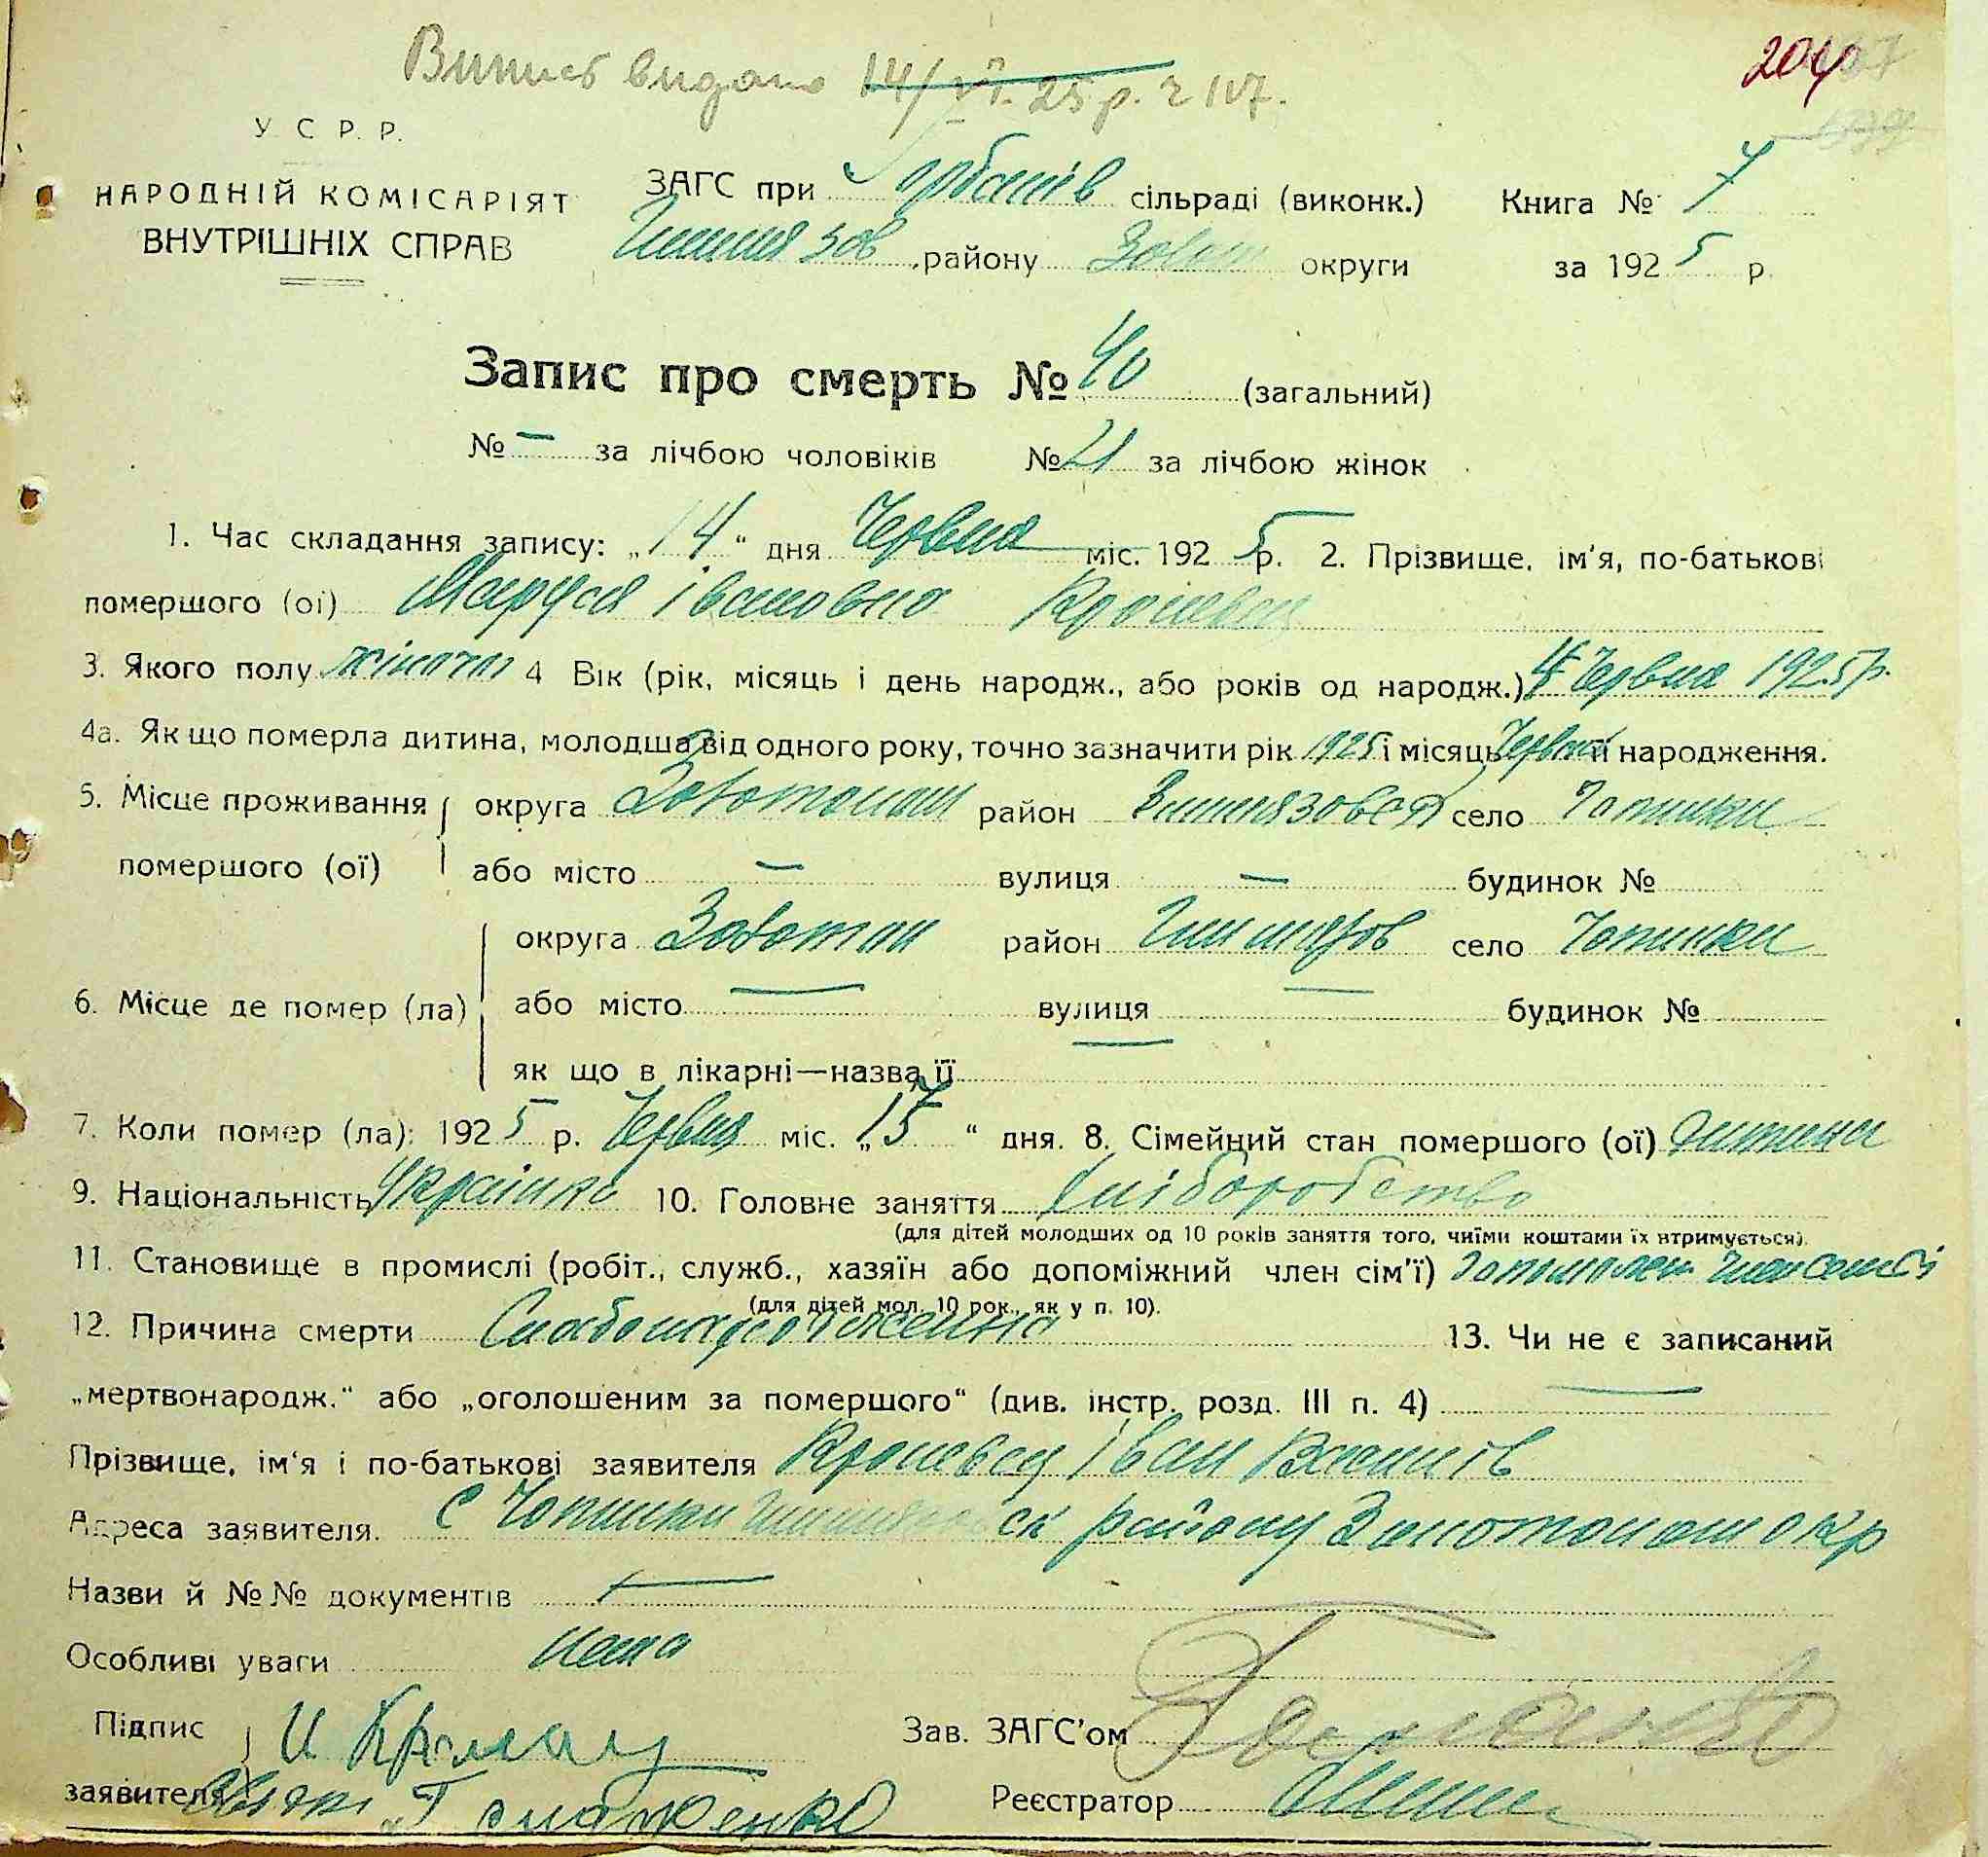 Випись видано 14/VI. 25 р. ч 117.
204
У. С. Р. Р.
НАРОДНІЙ КОМІСАРІЯТ
ВНУТРІШНІХ СПРАВ
ЗАГС при Горбанів сільраді (виконк.) Книга № 7
району Золот округи за 1925 р.
Запис про смерть № 40 (загальний)
№ — за лічбою чоловіків № 21 за лічбою жінок
1. Час складання запису: „14“ дня Червня міс. 1925 р. 2. Прізвище, ім'я, по-батькові
помершого (ої) Маруся Івановна
3. Якого полу жіночого 4 Вік (рік, місяць і день народж., або років од народж.) Червня 1925 р.
4а. Як що померла дитина, молодша від одного року, точно зазначити рік 1925 і місяць Червня її народження.
5. Місце проживання округа Золотонош район село Чопилки
помершого (ої) або місто — вулиця — будинок №
округа Золотон район село Чопилки
6. Місце де помер (ла) або місто — вулиця — будинок №
як що в лікарні—назва її —
7. Коли помер (ла): 1925 р. Червня міс. „13“ дня. 8. Сімейний стан помершого (ої) дитина
9. Національність Українка 10. Головне заняття Хліборобство
(для дітей молодших од 10 років заняття того, чиїми коштами їх втримується).
11. Становище в промислі (робіт., служб., хазяїн або допоміжний член сім'ї) член семьї
(для дітей мол. 10 рок., як у п. 10).
12. Причина смерти 13. Чи не є записаний
„мертвонародж.“ або „оголошеним за помершого“ (див. інстр. розд. III п. 4) —
Прізвище, ім'я і по-батькові заявителя Іван
Адреса заявителя. с Чопилки ск району Золотонош окр
Назви й №№ документів —
Особливі уваги нема
Підпис И Зав. ЗАГС'ом
заявителя Реєстратор